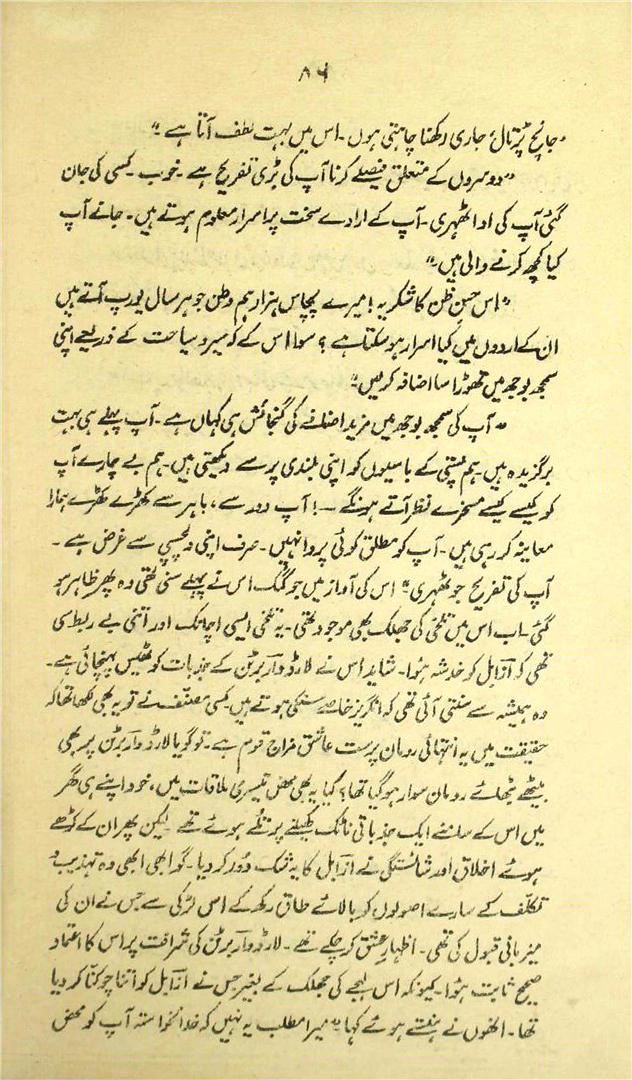 ۸۶
"جانچ پڑتال جاری رکھنا چاہتی ہوں۔ اس میں بہت لطف آتا ہے۔"
"دوسروں کے متعلق فیصلے کرنا آپ کی بڑی تفریح ہے۔ خوب۔ کسی کی جان
گئی آپ کی ادا ٹھہری۔ آپ کے ارادے سخت پراسرار معلوم ہوتے ہیں۔ جانے آپ
کیا کچھ کرنے والی ہیں۔"
"اس حسن ظن کا شکریہ! میرے پچاس ہزار ہم وطن جو ہر سال یورپ آتے ہیں
ان کے ارادوں میں کیا اسرار ہو سکتا ہے؟ سوا اس کے کہ سیر و سیاحت کے ذریعے اپنی
سمجھ بوجھ میں تھوڑا سا اضافہ کر لیں۔"
"آپ کی سمجھ بوجھ میں مزید اضافے کی گنجائش ہی کہاں ہے۔ آپ پہلے ہی بہت
برگزیدہ ہیں۔ ہم پستی کے باسیوں کو اپنی بلندی پر سے دیکھتی ہیں۔ ہم بے چارے آپ
کو کیسے کیسے مسخرے نظر آتے ہونگے ــ! آپ دور سے، باہر سے کھڑے کھڑے ہمارا
معاینہ کر رہی ہیں۔ آپ کو مطلق کوئی پروا نہیں۔ صرف اپنی دلچسپی سے غرض ہے۔
آپ کی تفریح جو ٹھہری" اس کی آواز میں جو گمک اس نے پہلے سنی تھی وہ پھر ظاہر ہو
گئی۔ اب اس میں تلخی کی جھلک بھی موجود تھی۔ یہ تلخی ایسی اچانک اور اتنی بے ربط سی
تھی کہ ازابل کو خدشہ ہوا۔ شاید اس نے لارڈ واربرٹن کے جذبات کو ٹھیس پہنچائی ہے۔
وہ ہمیشہ سے سنتی آئی تھی کہ انگریز خاصے سنکی ہوتے ہیں۔ کسی مصنف نے تو یہ بھی لکھا تھا کہ
حقیقت میں یہ انتہائی رومان پرست عاشق مزاج قوم ہے۔ تو گویا لارڈ واربرٹن پر بھی
بیٹھے بٹھائے رومان سوار ہو گیا تھا؟ کیا یہ بھی محض تیسری ملاقات میں، خود اپنے ہی گھر
میں اس کے سامنے ایک جذباتی ناٹک کھیلنے پر تلے ہوئے تھے۔ لیکن پھر ان کے گڑھے
ہوئے اخلاق اور شائستگی نے ازابل کا یہ شک دور کر دیا۔ گو ابھی ابھی وہ تہذیب و
تکلف کے سارے اصولوں کو بالائے طاق رکھ کے اس لڑکی سے جس نے ان کی
میزبانی قبول کی تھی۔ اظہار عشق کر چکے تھے۔ لارڈ واربرٹن کی شرافت پر اس کا اعتماد
صحیح ثابت ہوا۔ کیونکہ اس لہجے کی جھلک کے بغیر جس نے ازابل کو اتنا چوکنّا کر دیا
تھا۔ انھوں نے ہنستے ہوئے کہا "میرا مطلب یہ نہیں کہ خدا نخواستہ آپ کو محض